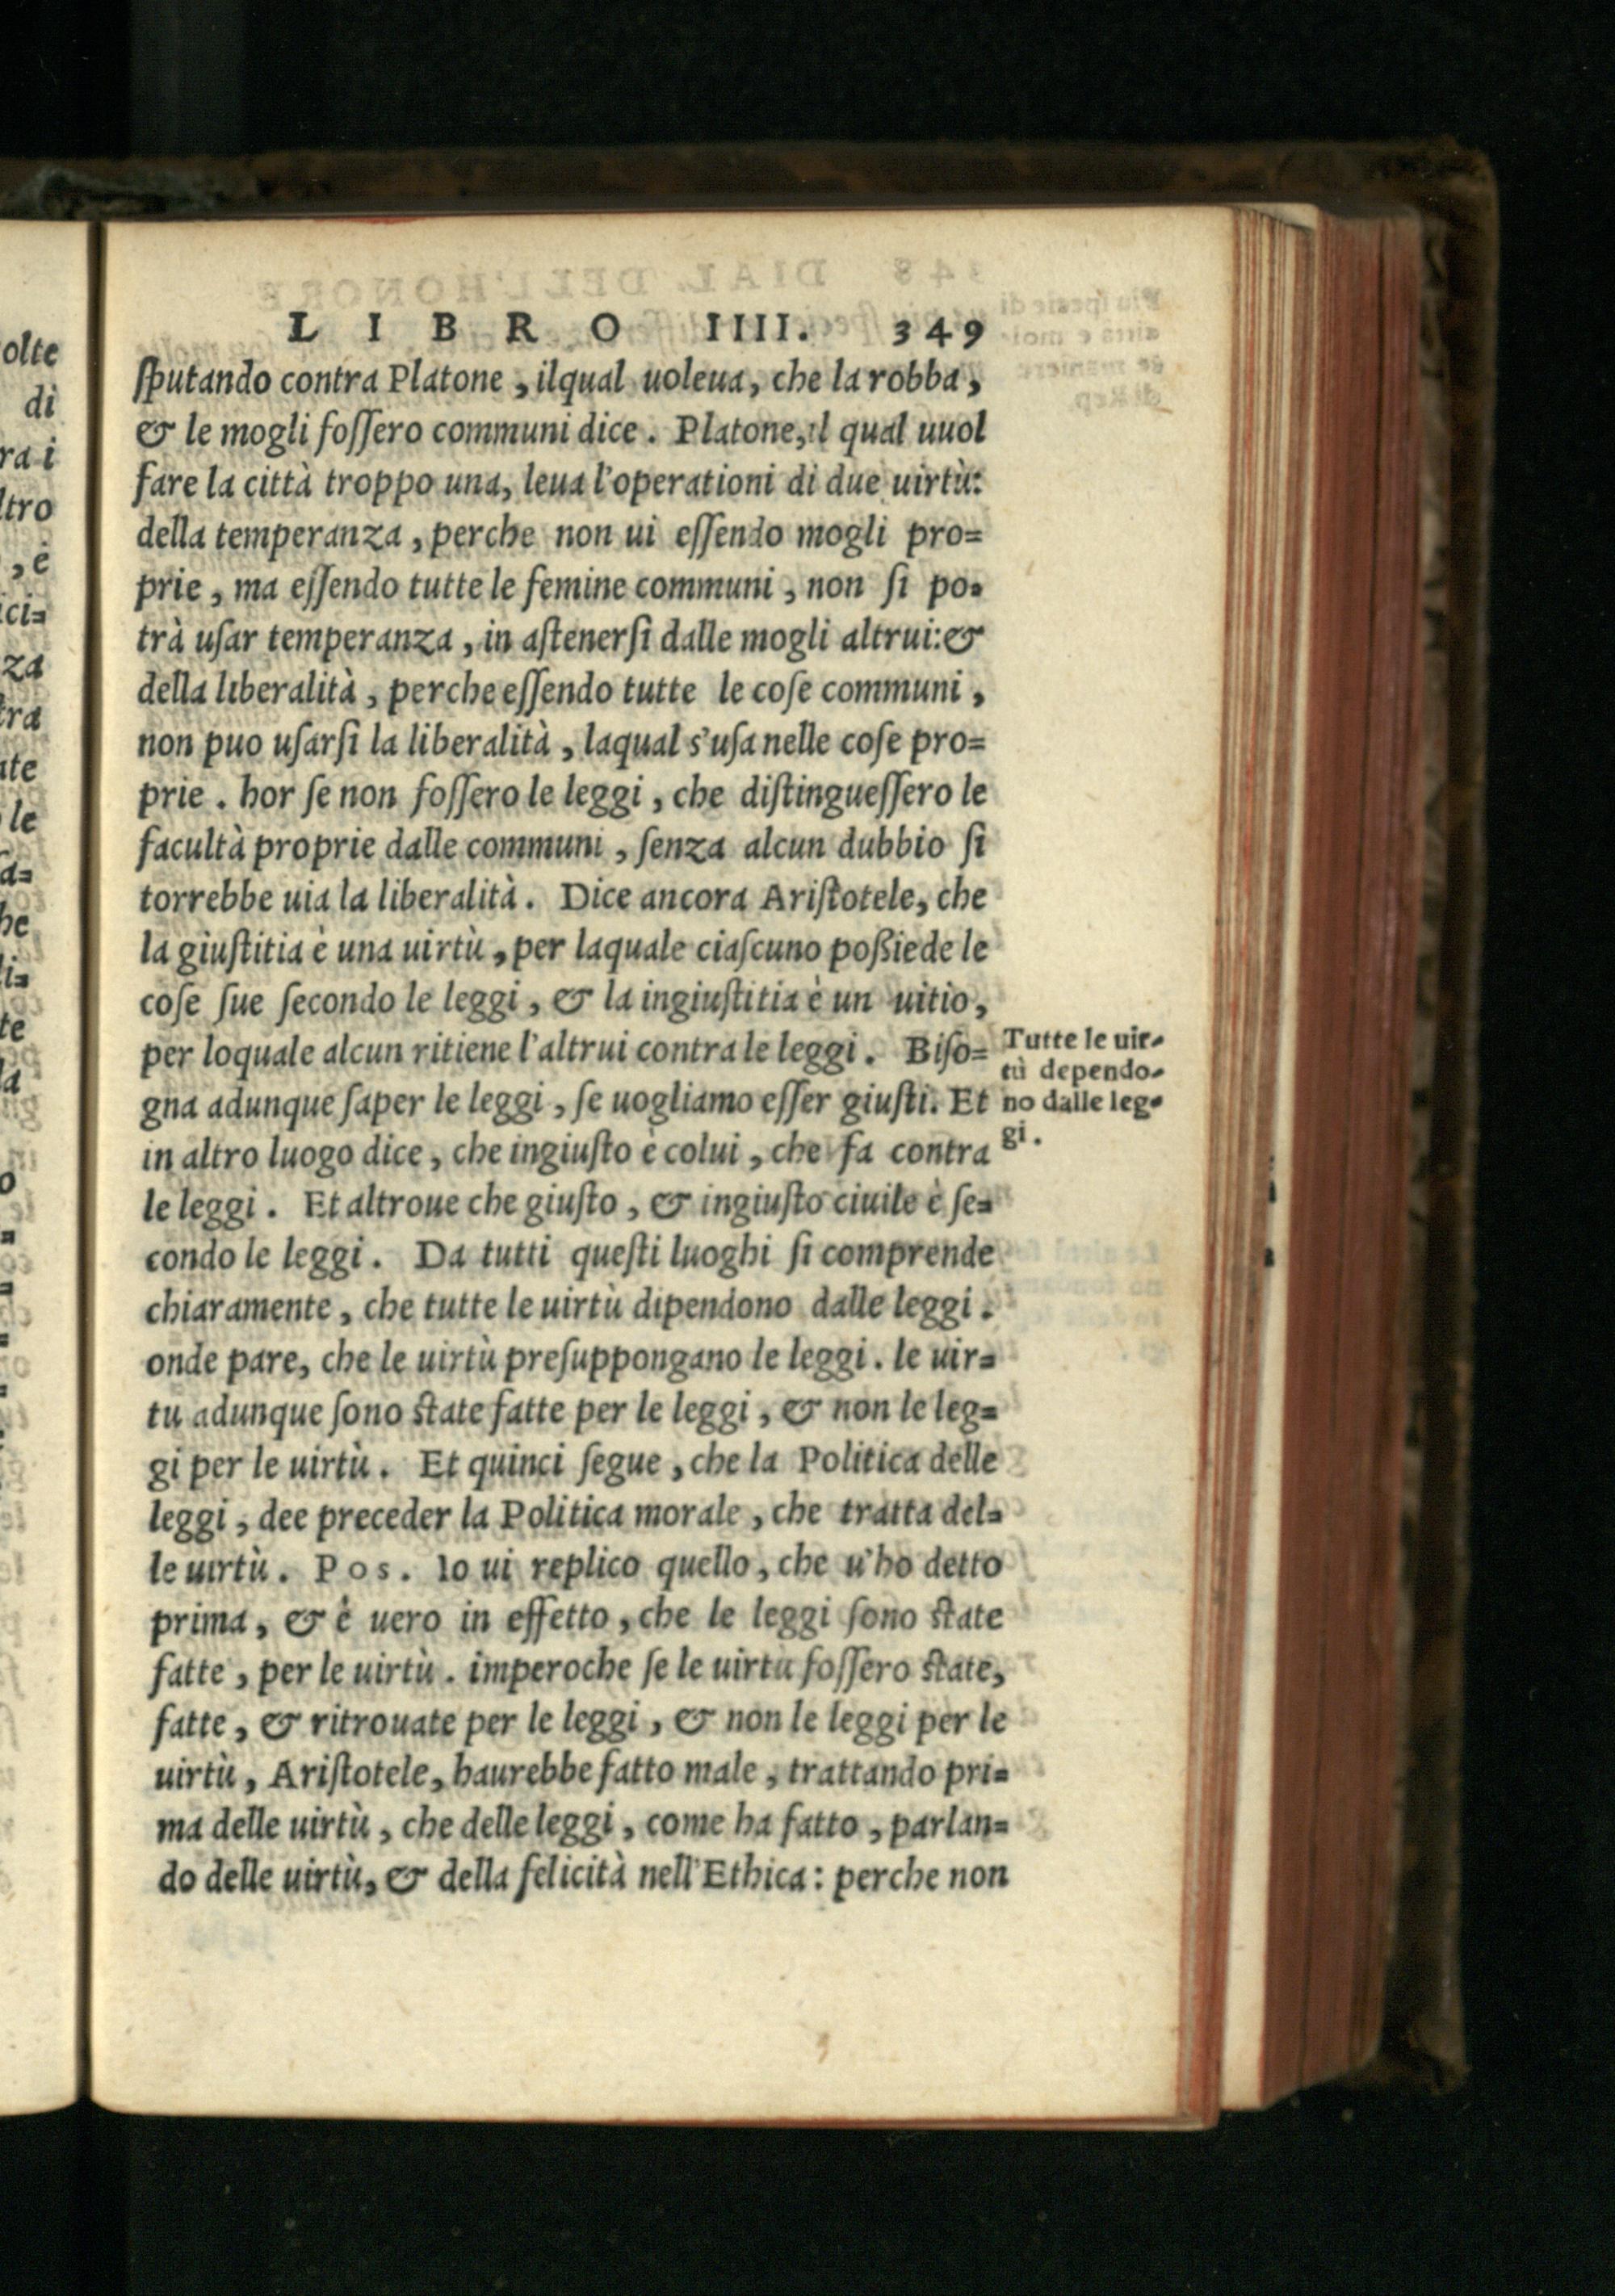 LIBRO IIII. 349
ſputando contra Platone, ilqual uoleua, che la robba,
& le mogli foſſero communi dice. Platone, il qual uuol
fare la città troppo una, leua l'operationi di due uirtù:
della temperanza, perche non ui eſſendo mogli pro=
prie, ma eſſendo tutte le femine communi, non ſi po=
trà uſar temperanza, in aſtenerſi dalle mogli altrui: &
della liberalità, perche eſſendo tutte le coſe communi,
non puo uſarſi la liberalità, laqual s'uſa nelle coſe pro=
prie. hor ſe non foſſero le leggi, che diſtingueſſero le
facultà proprie dalle communi, ſenza alcun dubbio ſi
torrebbe uia la liberalità. Dice ancora Ariſtotele, che
la giuſtitia è una uirtù, per laquale ciaſcuno poßiede le
coſe ſue ſecondo le leggi, & la ingiuſtitia è un uitio,
per loquale alcun ritiene l'altrui contra le leggi. Biſo=
gna adunque ſaper le leggi, ſe uogliamo eſſer giuſti. Et
in altro luogo dice, che ingiuſto è colui, che fa contra
le leggi. Et altroue che giuſto, & ingiuſto ciuile è ſe=
condo le leggi. Da tutti queſti luoghi ſi comprende
chiaramente, che tutte le uirtù dipendono dalle leggi.
onde pare, che le uirtù preſuppongano le leggi. le uir=
tu adunque ſono ſtate fatte per le leggi, & non le leg=
gi per le uirtù. Et quinci ſegue, che la Politica delle
leggi, dee preceder la Politica morale, che tratta del=
le uirtù. Pos. Io ui replico quello, che u'ho detto
prima, & è uero in effetto, che le leggi ſono ſtate
fatte, per le uirtù. imperoche ſe le uirtu foſſero ſtate,
fatte, & ritrouate per le leggi, & non le leggi per le
uirtù, Ariſtotele, haurebbe fatto male, trattando pri=
ma delle uirtù, che delle leggi, come ha fatto, parlan=
do delle uirtù, & della felicità nell'Ethica: perche non
Tutte le uir-
tù dependo-
no dalle leg-
gi.
olte
di
ra i
ltro
, è
ici=
za
tra
ate
le
he
li=
te
la